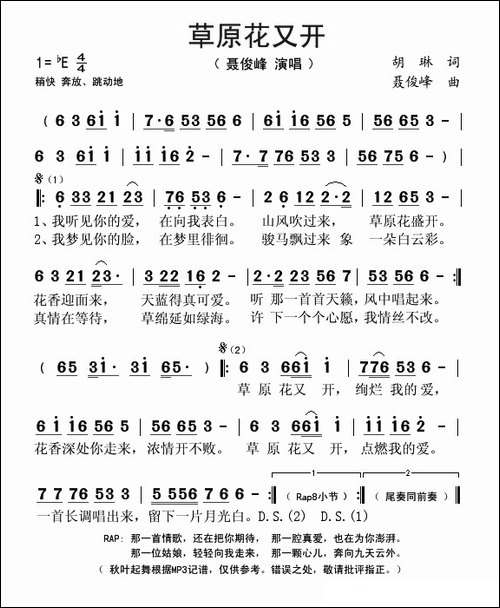 草原花又开
1=♭E 4/4
（ 聂俊峰 演唱 ）
胡 琳 词
稍快 奔放、跳动地
聂俊峰 曲
( 6 3 61 1 | 7·6 53 56 6 | 61 16 56 5 | 56 65 3 - |
6 3 61 1 | 11 16 2 - | 7· 7 76 53 3 | 56 75 6 - )
(1)
‖: 6 33 21 23 | 76 53 6 - | 2 6 12 2·2 | 12 65 3 - |
1、我听见你的爱， 在向我表白。 山风吹过来， 草原花盛开。
2、我梦见你的脸， 在梦里徘徊。 骏马飘过来 象 一朵白云彩。
6 3 21 23· | 3 22 16 2 - | 2· 2 23 56 7 | 53 56 6 - :‖
花香迎面来， 天蓝得真可爱。 听 那一首首天籁，风中唱起来。
真情在等待， 草绵延如绿海。 许 下一个个心愿，我情丝不改。
(2)
( 65 31· 31 65· ) ‖: 6 3 661 1 | 776 53 6 - |
草 原 花又 开， 绚烂 我的 爱，
6 1 16 56 5 | 56 56 3 - | 6 3 661 1 | 11 16 2 - |
花香深处你走来，浓情开不败。 草 原 花又 开，点燃我的爱。
7 7 76 53 3 | 5 556 7 6 - :‖ （ Rap8小节 ） :‖ （ 尾奏同前奏 ） ‖
1
2
一首长调唱出来，留下一片月光白。D.S.(2) D.S.(1)
RAP: 那一首情歌，还在把你期待， 那一腔真爱，也在为你澎湃。
那一位姑娘，轻轻向我走来， 那一颗心儿，奔向九天云外。
（ 秋叶起舞根据MP3记谱，仅供参考，错误之处，敬请批评指正。）